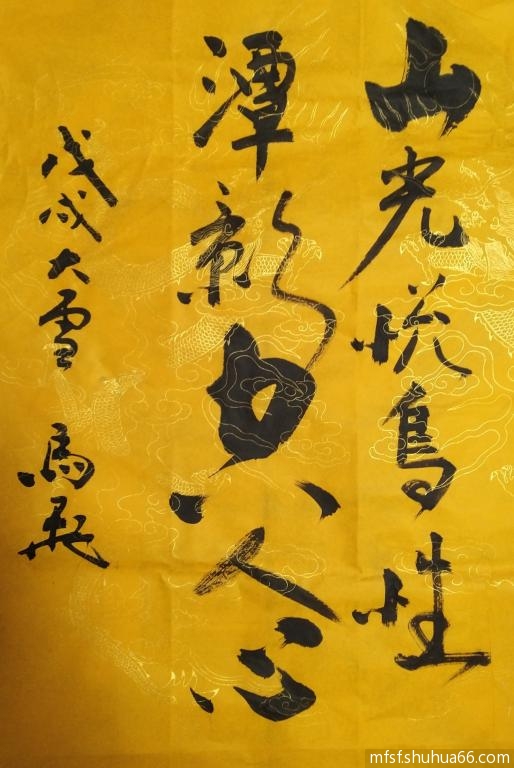 山光悦鳥性
潭影空人心
戊戌大雪 馬
mfsf.shuhua66.com